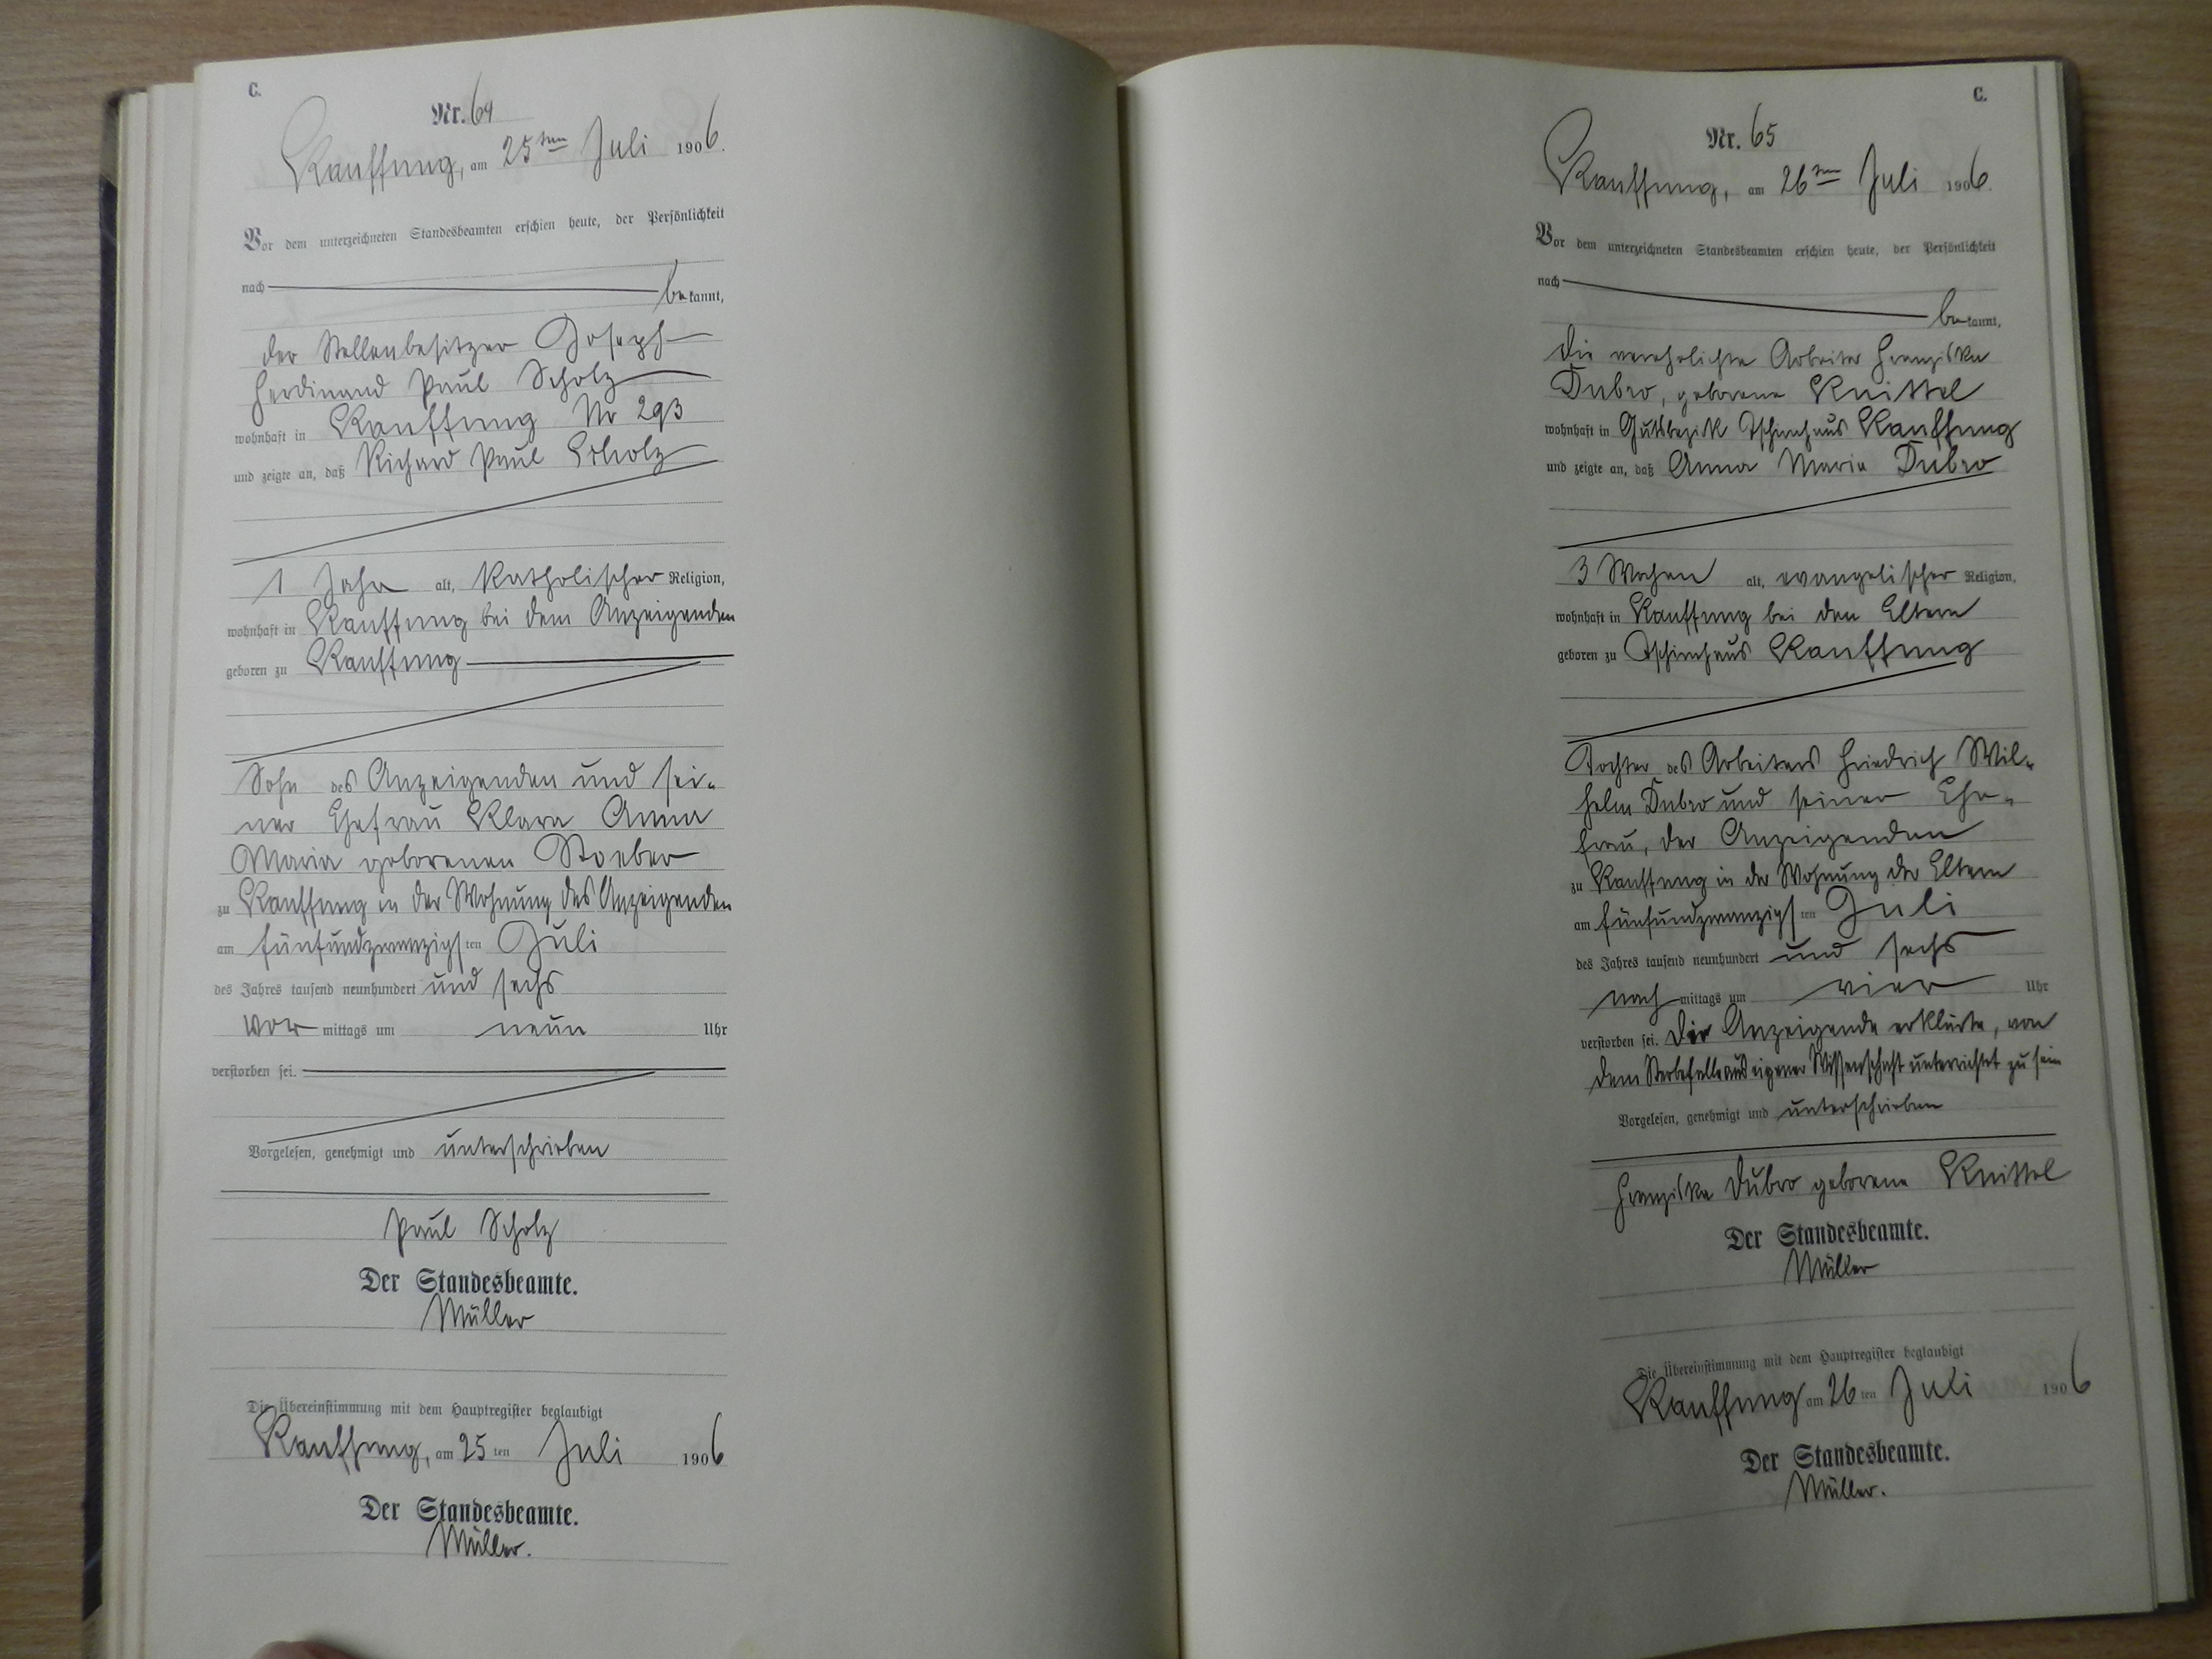 C.
Nr. 64
Kauffung, am 25ten Juli 1906.
Vor dem unterzeichneten Standesbeamten erschien heute, der Persönlichkeit
nach
bekannt,
der Stellenbesitzer Joseph
Ferdinand Paul Scholz
wohnhaft in Kauffung No 293
und zeigte an, daß Richard Paul Scholz
1 Jahr alt, katholischer Religion,
wohnhaft in Kauffung bei dem Anzeigenden
geboren zu Kauffung
Sohn des Anzeigenden und sei-
ner Ehefrau Klara Anna
Maria geborenen Stoeber
zu Kauffung in der Wohnung des Anzeigenden
am fünfundzwanzigsten Juli
des Jahres tausend neunhundert und sechs
vormittags um neun Uhr
verstorben sei.
Vorgelesen, genehmigt und unterschrieben
Paul Scholz
Der Standesbeamte.
Müller
Die Übereinstimmung mit dem Hauptregister beglaubigt
Kauffung, am 25ten Juli 1906
Der Standesbeamte.
Müller.
C.
Nr. 65
Kauffung, am 26ten Juli 1906.
Vor dem unterzeichneten Standesbeamten erschien heute, der Persönlichkeit
nach
bekannt,
die verehelichte Arbeiter Franziska
Dubro, geborene Knittel
wohnhaft in Gutsbezirk Tschirnhaus Kauffung
und zeigte an, daß Anna Maria Dubro
3 Wochen alt, evangelischer Religion,
wohnhaft in Kauffung bei den Eltern
geboren zu Tschirnhaus Kauffung
Tochter des Arbeiters Friedrich Wil-
helm Dubro und seiner Ehe-
frau, der Anzeigenden
zu Kauffung in der Wohnung der Eltern
am fünfundzwanzigsten Juli
des Jahres tausend neunhundert und sechs
nachmittags um vier Uhr
verstorben sei. Die Anzeigende erklärte, von
dem Sterbefalle aus eigener Wissenschaft unterrichtet zu sein
Vorgelesen, genehmigt und unterschrieben
Franziska Dubro geborene Knittel
Der Standesbeamte.
Müller
Die Übereinstimmung mit dem Hauptregister beglaubigt
Kauffung am 26ten Juli 1906
Der Standesbeamte.
Müller.